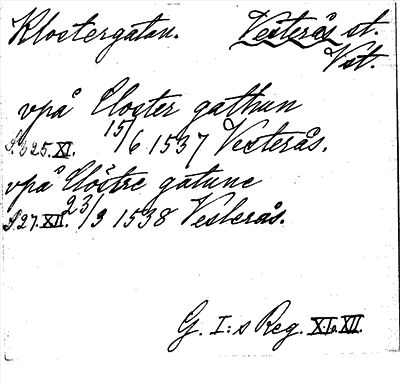 Klostergatan. Vesterås st.
Vst.
vpå Closter gathun
S. 325. XI. 15/6 1537 Vesterås.
vpå Clöstre gatune
S 27. XII. 23/3 1538 Vesterås.
G. I:s Reg. XI. XII.